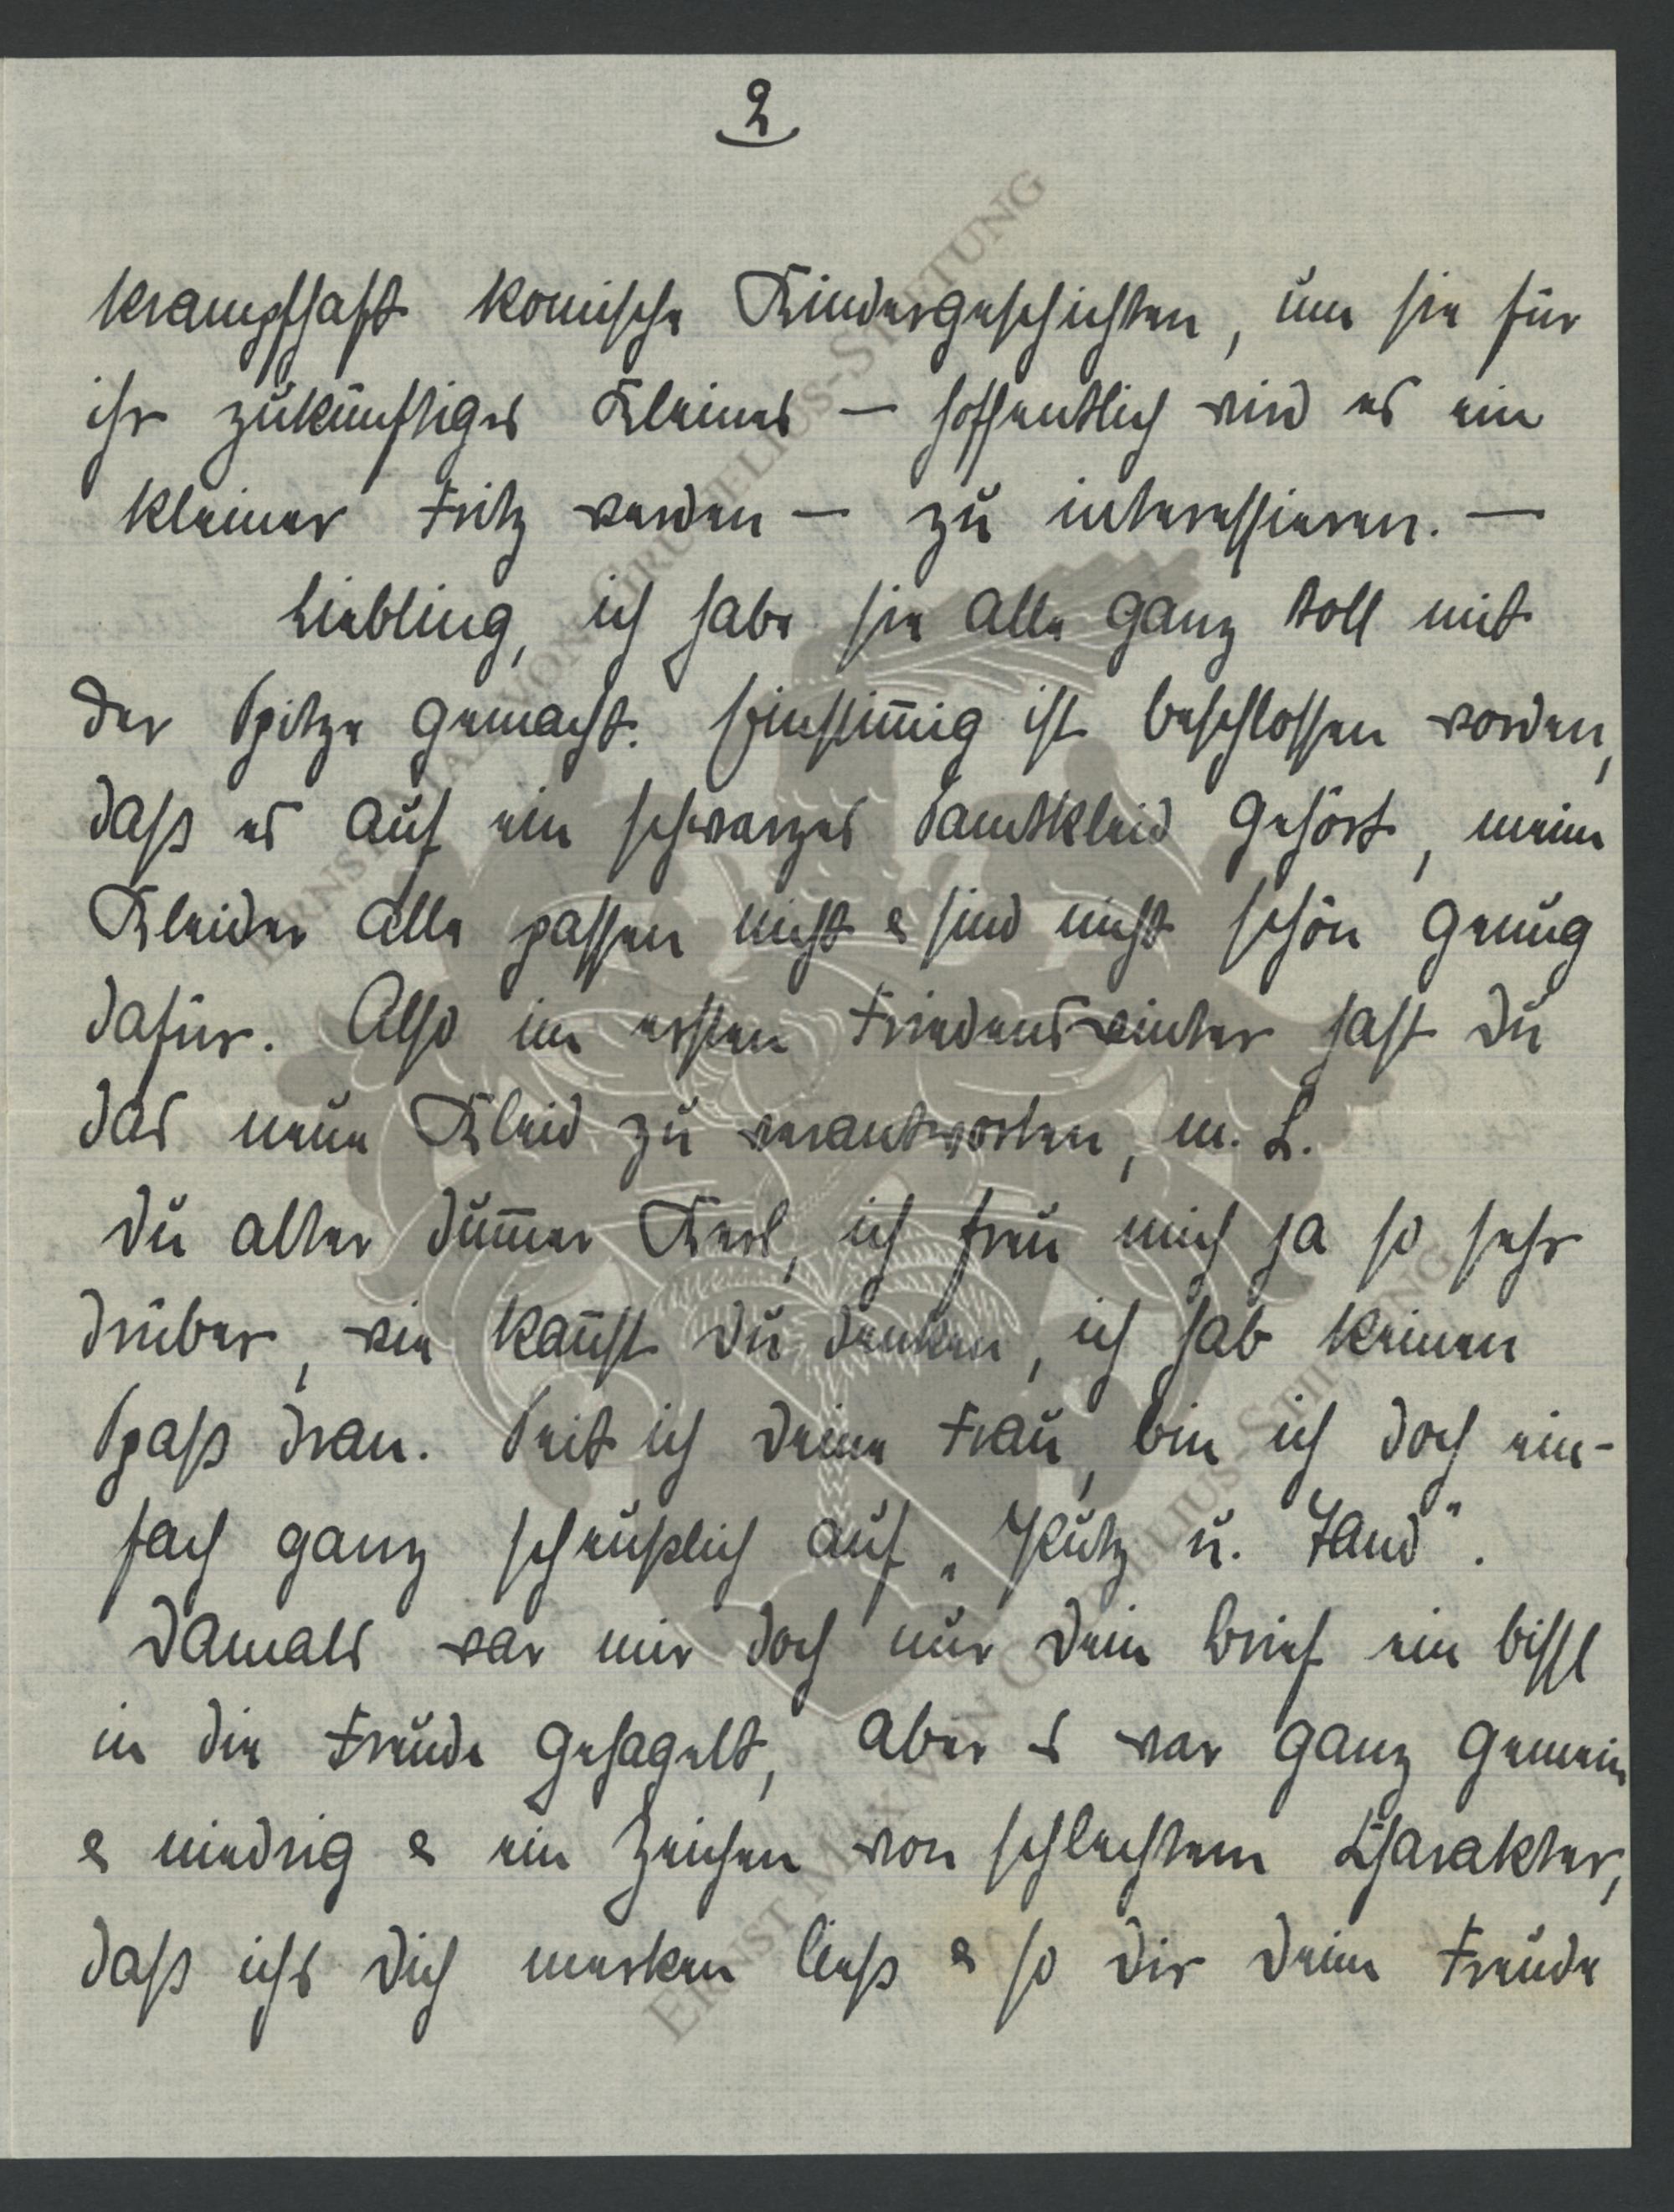 2
krampfhaft komische Kindergeschichten, um sie für
ihr zukünftiges Kleines — hoffentlich wird es ein
kleiner Fritz werden — zu interessieren. —
Liebling, ich habe sie alle ganz toll mit
der Spitze gemacht. Einstim̅ig ist beschlossen worden,
daß es auf ein schwarzes Samtkleid gehört, meine
Kleider alle passen nicht & sind nicht schön genug
dafür. Also im ersten Friedenswinter hast Du
das neue Kleid zu verantworten, m. L.
Du alter dum̅er Kerl, ich freu mich ja so sehr
drüber, wie kan̅st Du denken, ich hab keinen
Spaß dran. Seit ich Deine Frau, bin ich doch ein-
fach ganz scheußlich auf „Putz u. Tand“.
Damals war mir doch nur Dein Brief ein bissl
in die Freude gehagelt, aber s war ganz gemein
& niedrig & ein Zeichen von schlechtem Charakter,
daß ichs Dich merken ließ & so Dir Deine Freude
ERNST MAX VON GRUNELIUS-STIFTUNG
ERNST MAX VON GRUNELIUS-STIFTUNG